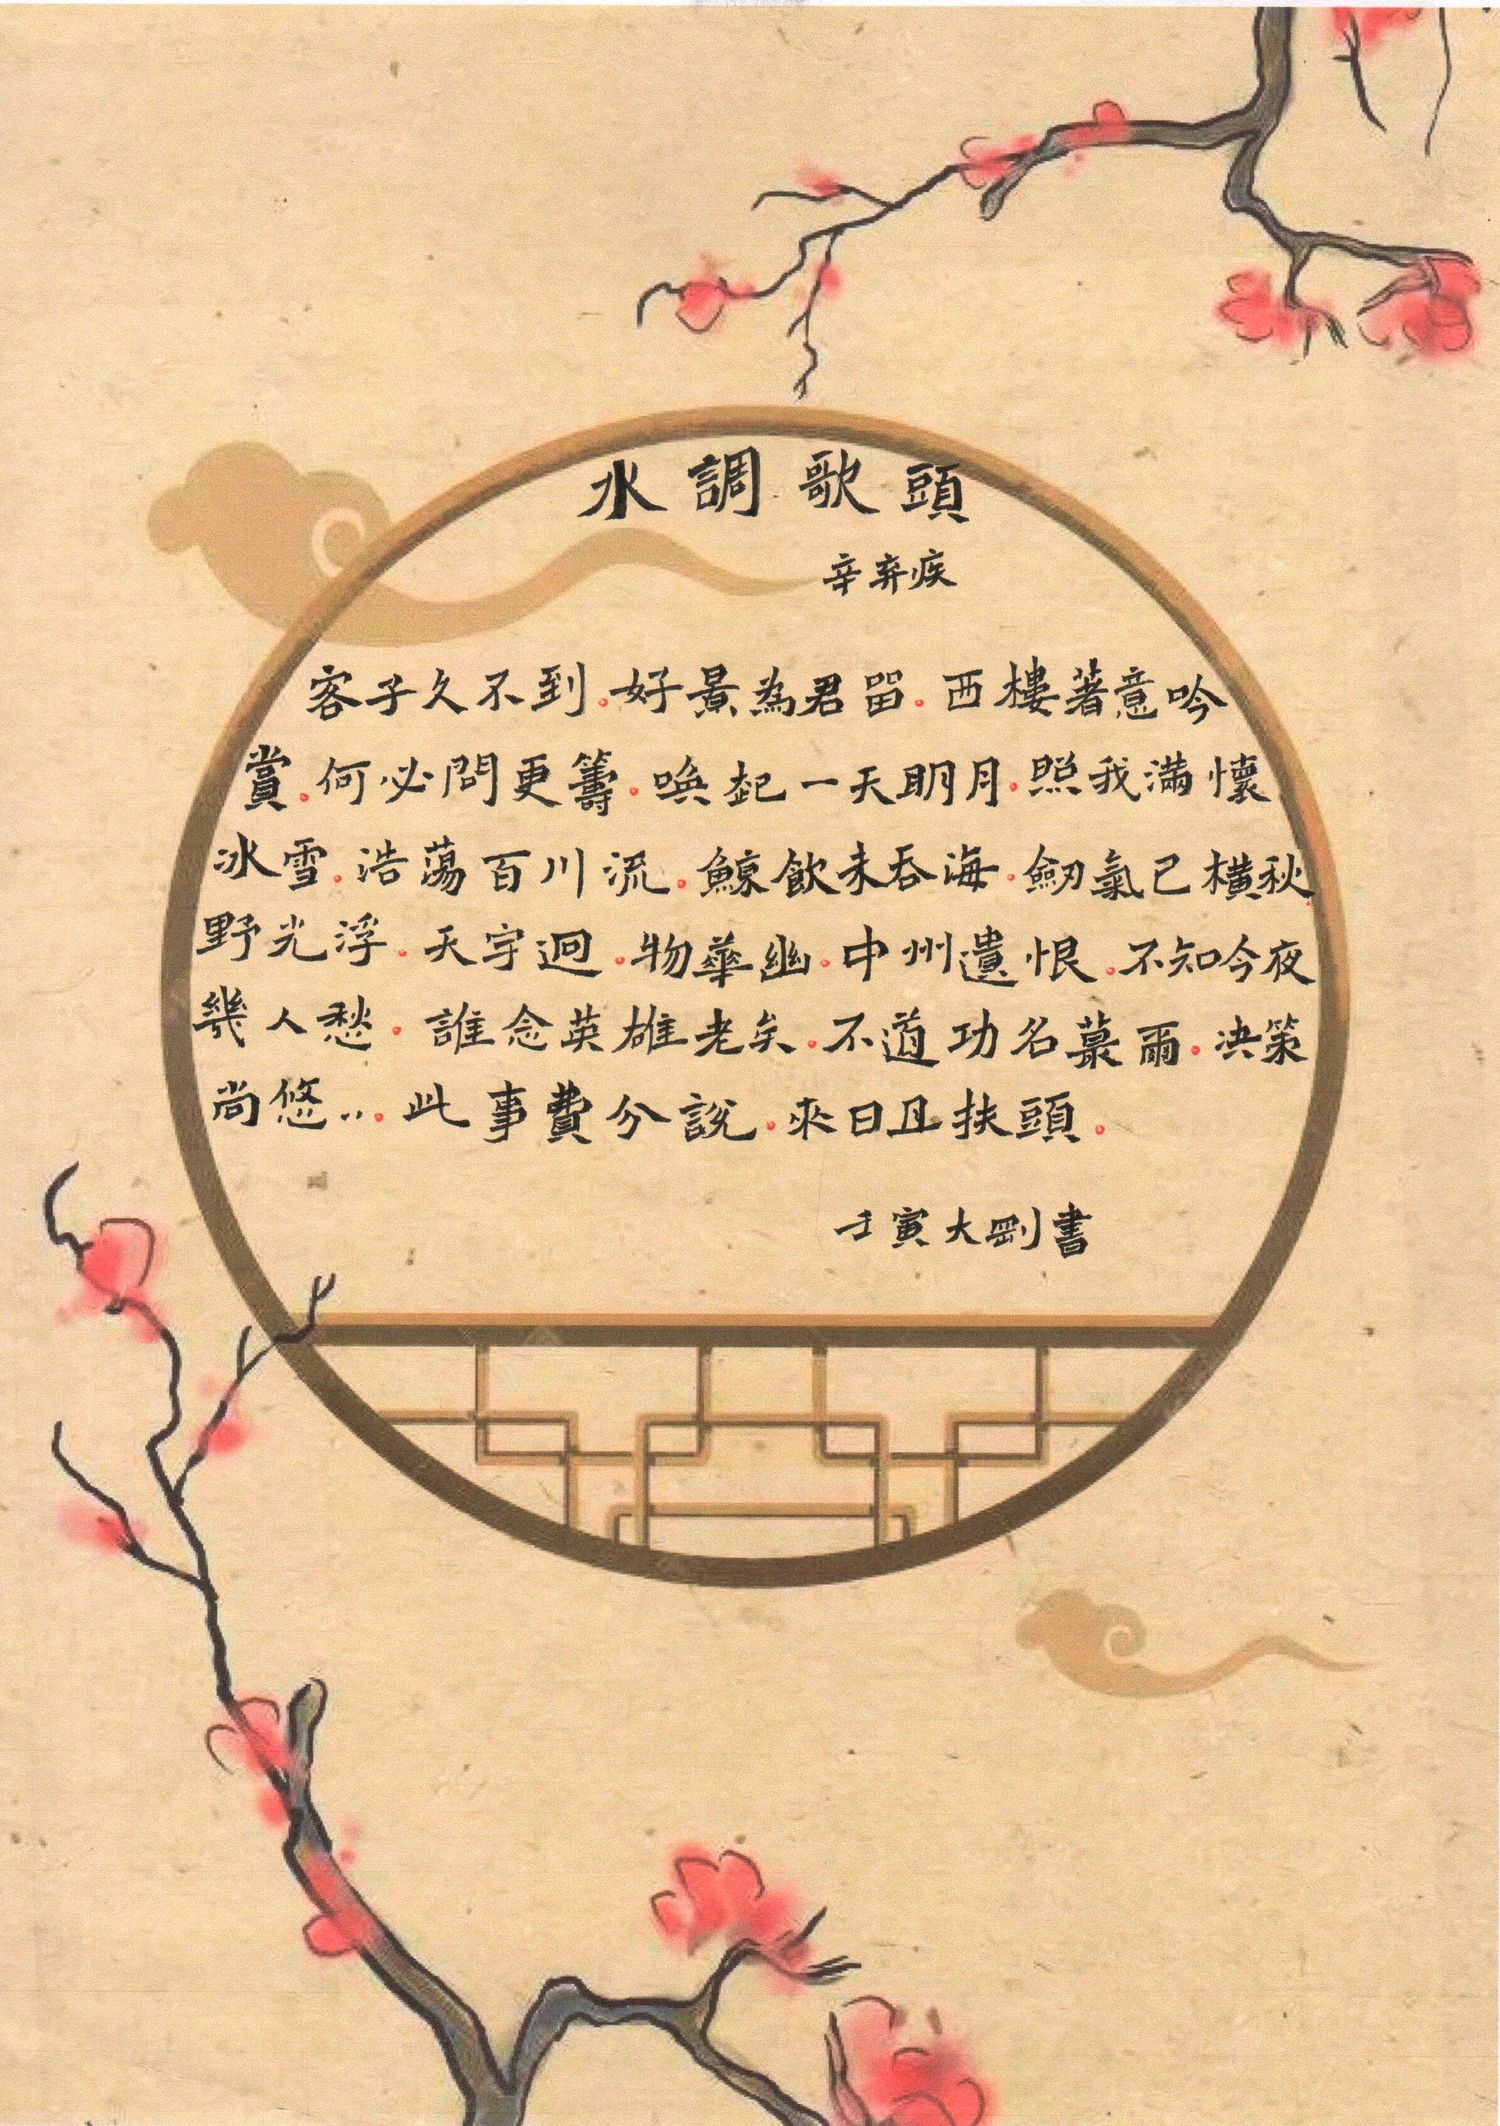 水調歌頭
辛弃疾
客子久不到.好景為君留.西樓著意吟
賞.何必問更籌.喚起一天明月.照我滿懷
冰雪.浩蕩百川流.鯨飲未吞海.劒氣已橫秋.
野光浮.天宇迥.物華幽.中州遺恨.不知今夜
幾人愁.誰念英雄老矣.不道功名蕞爾.决策
尚悠〃.此事費分說.來日且扶頭.
壬寅大剛書